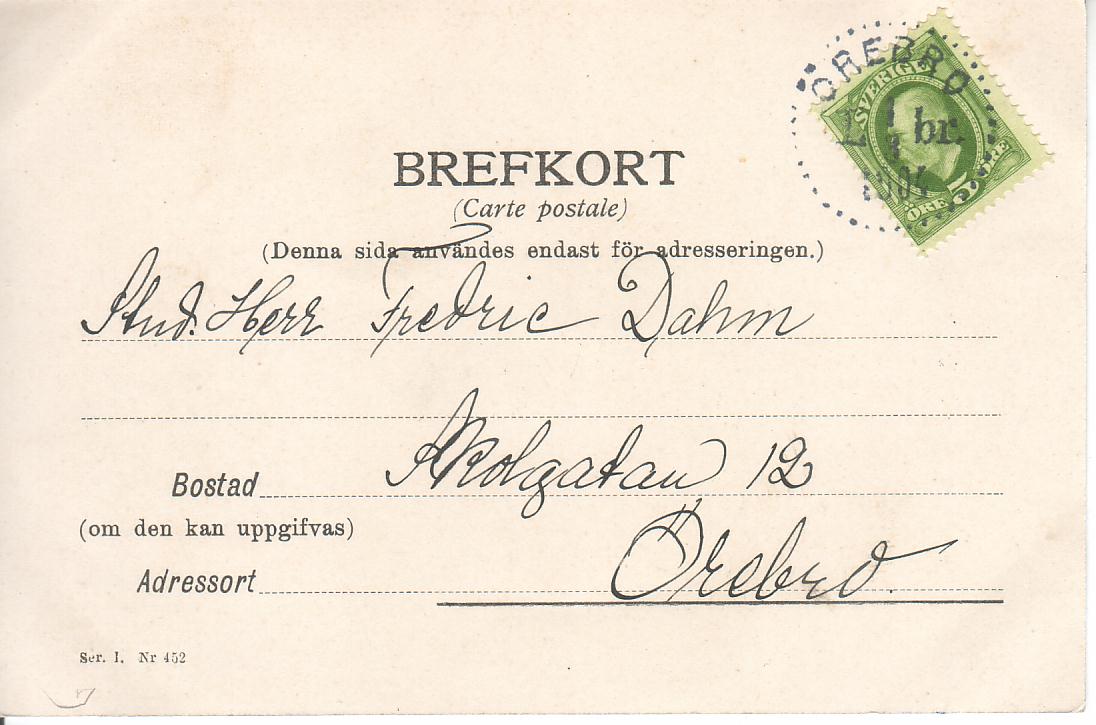 BREFKORT
(Carte postale)
(Denna sida användes endast för adresseringen.)
ÖREBRO
L br.
1
1
1904
SVERIGE
ÖRE 5 ÖRE
Stud. Herr Fredric Dahm
Bostad Skolgatan 12
(om den kan uppgifvas)
Adressort Örebro.
Ser. I. Nr 452